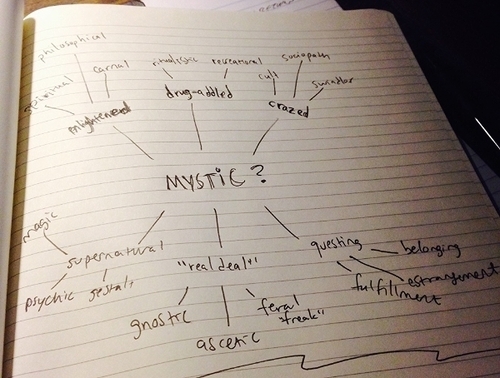 philosophical
spiritual
carnal
enlightened
ritualistic
recreational
drug-addled
sociopath
cult
crazed
MYSTIC?
magic
supernatural
psychic
gestalt
"real deal"
gnostic
ascetic
feral
"freak"
questing
belonging
estrangement
fulfillment